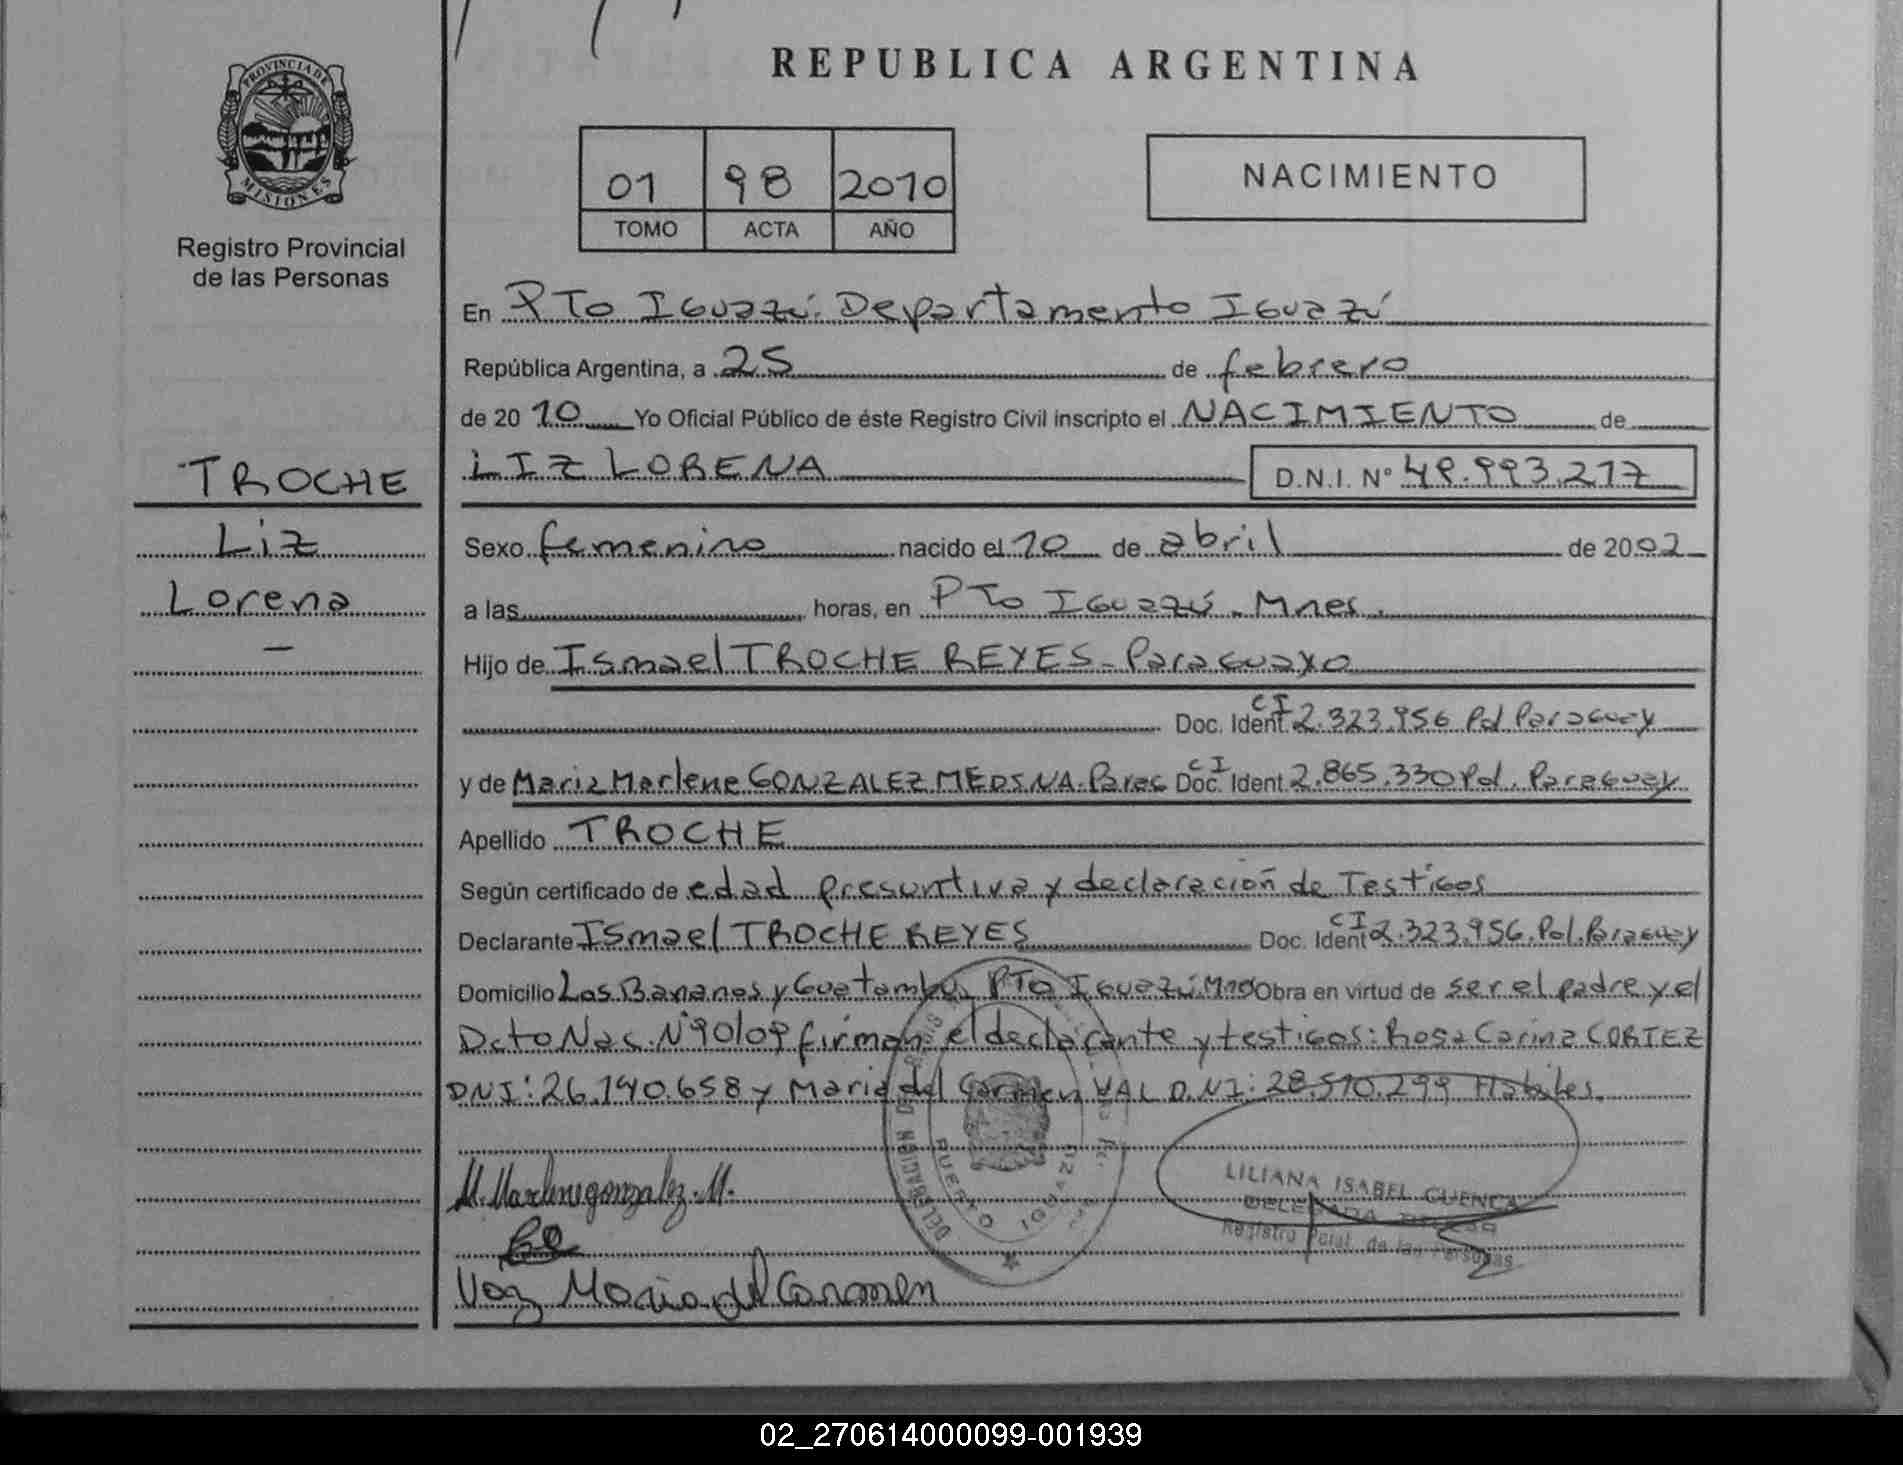 REPUBLICA ARGENTINA
PROVINCIA DE
MISIONES
Registro Provincial
de las Personas
01 98 2010
TOMO ACTA AÑO
NACIMIENTO
En Pto Iguazú. Departamento Iguazú
República Argentina, a 25 de febrero
de 2010 Yo Oficial Público de éste Registro Civil inscripto el NACIMIENTO de
TROCHE
Liz
Lorena
LIZ LORENA D.N.I. N° 49.993.217
Sexo femenino nacido el 10 de abril de 2002
a las horas, en Pto Iguazú. Mnes.
Hijo de Ismael TROCHE REYES - Paraguayo
Doc. Ident. CI 2.323.956 Pol Paraguay
y de Maria Marlene GONZALEZ MEDINA. Parag Doc. Ident CI 2.865.330 Pol. Paraguay
Apellido TROCHE
Según certificado de edad presuntiva y declaración de Testigos
Declarante Ismael TROCHE REYES Doc. Ident CI 2.323.956. Pol. Paraguay
Domicilio Los Bananos y Guatambu, Pto Iguazú. Mnes Obra en virtud de ser el padre y el
Dcto Nac. N° 90/09 firman el declarante y testigos: Rosa Carina CORTEZ
DNI: 26.140.658 y Maria del Carmen VAL D.N.I: 28.510.299 Habiles.
M. Marlene gonzalez. M.
Maria del Carmen
DELEGACION
PUERTO IGUAZU
LILIANA ISABEL CUENCA
DELEGADA
Registro Pcial. de las Personas
02_270614000099-001939